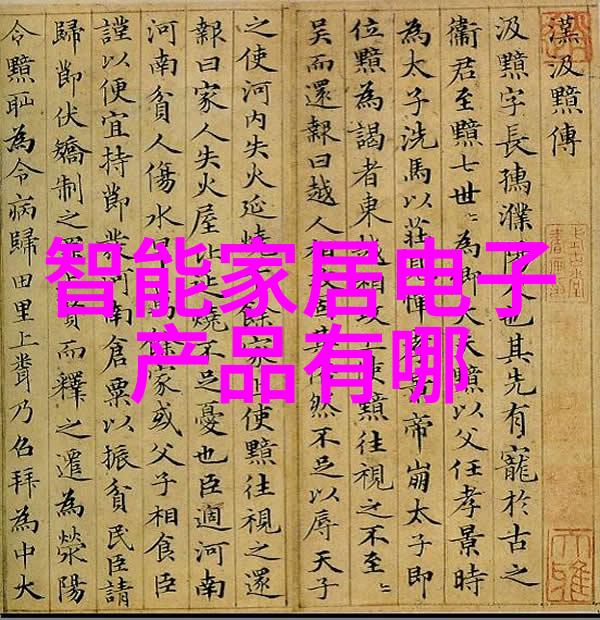 漢汲黯傳
汲黯字長孺濮人也其先有寵於古之
衛君至黯七世〻為卿大夫黯以父任孝景時
為太子洗馬以莊憚孝帝崩太子即
位黯為謁者東越相攻上使黯往視之不至〻
吳而還報曰越人相攻然不足以辱天子
之使河内失火延燒餘家上使黯往視之還
報曰家人失火屋比延燒不足憂也臣河南
河南貧人傷水餘家或父子相食臣
謹以便宜持節發河南倉粟以振貧民臣請
歸節伏矯制之罪賢而釋之遷為滎陽
令黯恥為令病歸田里上乃召拜為中大
智能家居电子
产品有哪